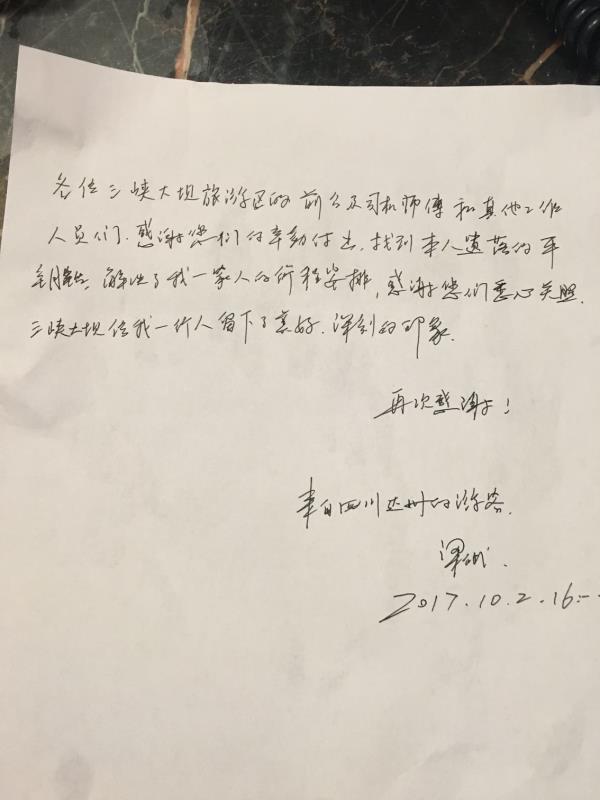 各位三峡大坝旅游区的前台及司机师傅和其他工作
人员们.感谢您们付辛勤付出,找到本人遗落的车
钥匙,解决了我一家人的行程安排,感谢您们悉心关照.
三峡大坝给我一行人留下了美好.深刻的印象.
再次感谢!
来自四川达州的游客.
梁
2017.10.2.16: